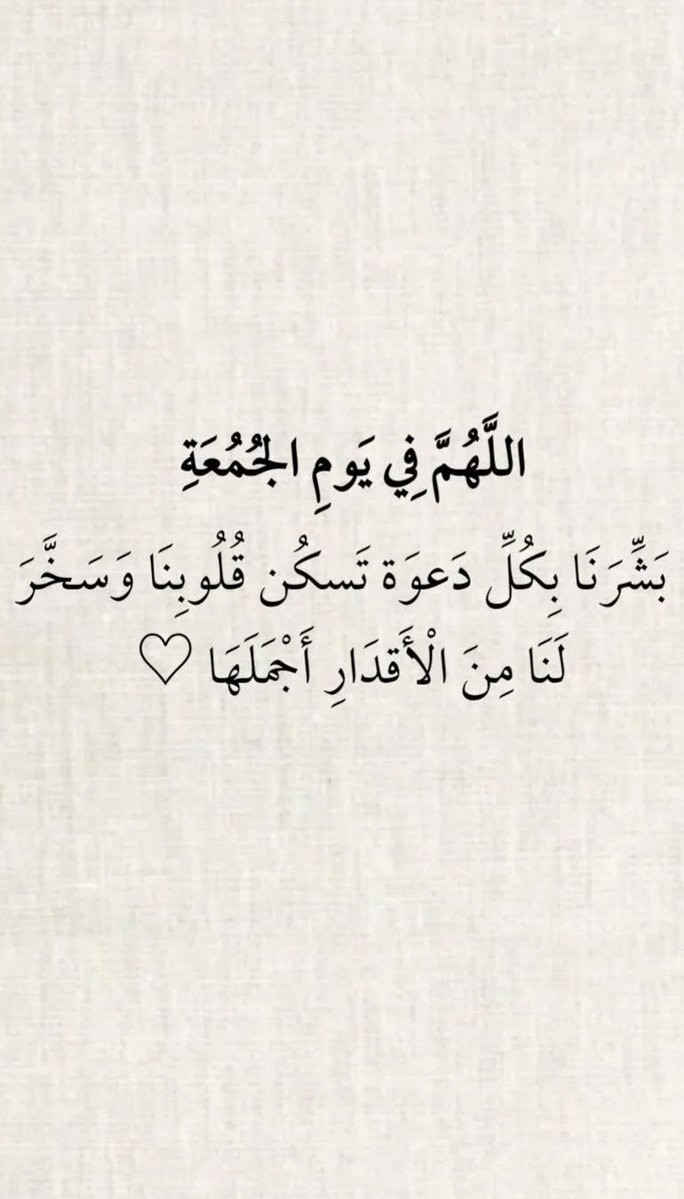 اللَّهُمَّ فِي يَومِ الجُمُعَةِ
بَشِّرَنَا بِكُلِّ دَعوَة تَسكُن قُلُوبِنَا وَسَخَّرَ
لَنَا مِنَ الْأَقدَارِ أَجْمَلَهَا ♡